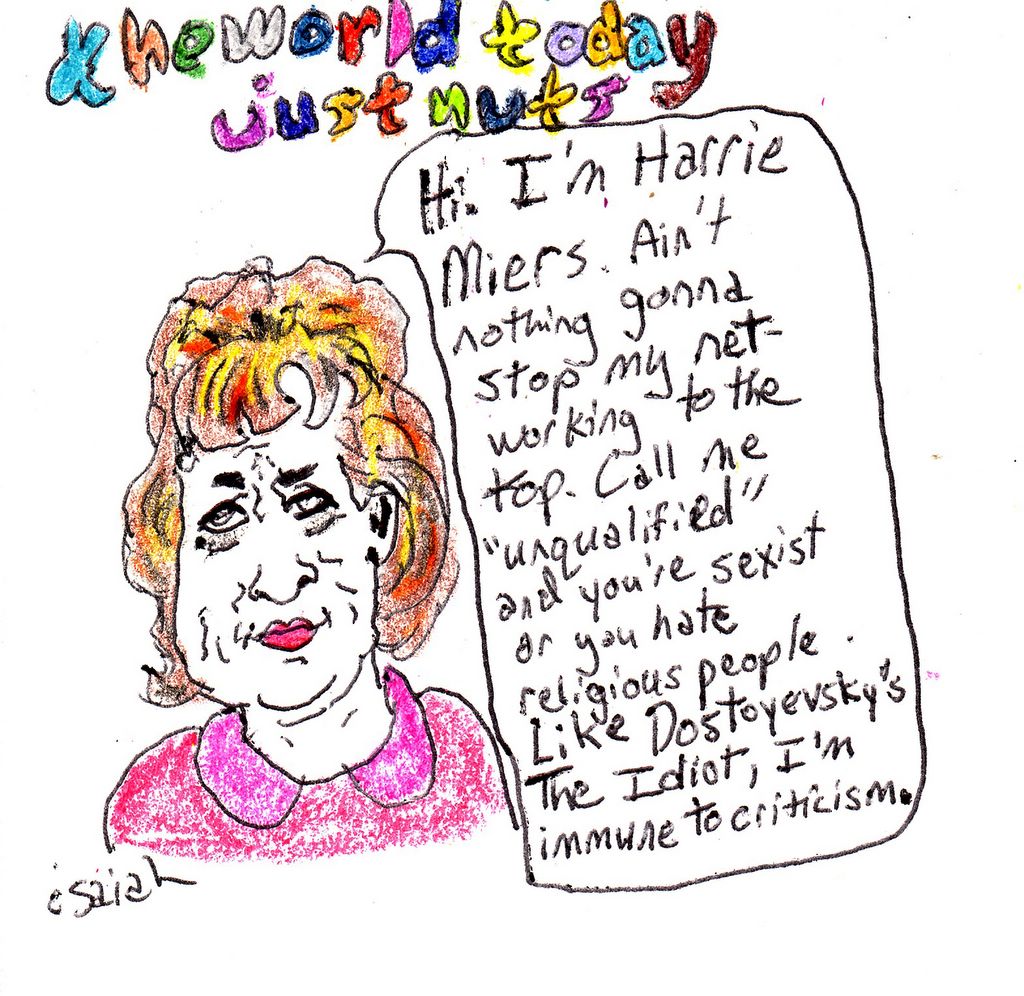 the world today
just nuts
Hi. I'm Harrie
Miers. Ain't
nothing gonna
stop my net-
working to the
top. Call me
"unqualified"
and you're sexist
or you hate
religious people.
Like Dostoyevsky's
The Idiot, I'm
immune to criticism.
isaiah